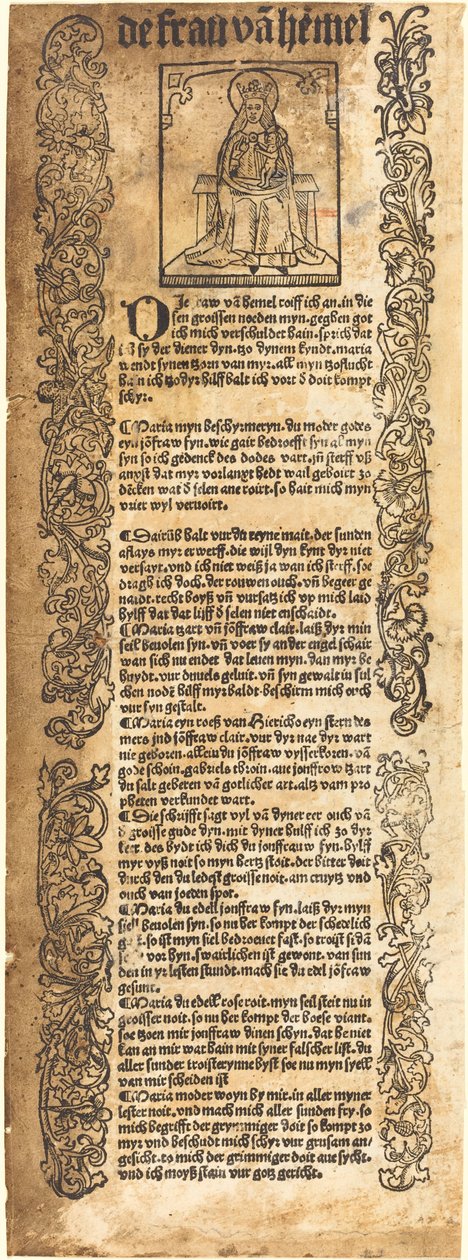 de frau vā hēmel
Je fraw vā hemel roiff ich an. in die
sen groissen noeden myn. gegben got
ich mich verschuldet hain. sprich dat
ich sy der diener dyn. tzo dynem kyndt. maria
wendt synen tzorn van myr. all myn tzoflucht
hain ich tzo dyr hilff balt ich vort d doit kompt
schyr.
Maria myn beschyrmeryn. du moder godes
eyn jōffraw fyn. wie gait bedroefft syn al myn
syn so ich gedenck des dodes vart. vn̄ sterff vß
anxst dat myr vorlanxt hedt wail geboirt zo
decken wat d selen ane roirt. so hait mich myn
vrier wyl vervoirt.
balt vur du reyne mait. der sunden
aflays myr erwerff. die wijl dyn kynt dyr niet
versayt. vnd ich niet weiß ja wan ich sterff. soe
dragh ich doch. der rouwen ouch. vn̄ begeer ge
naidt. recht boyß vn̄ vursatz ich vp mich laid
hylff dat dat lijff d selen niet enschaidt.
Maria tzart vn̄ jōffraw clair. laiß dyr min
seil beuolen syn. vn̄ voer sy an der engel schair
wan sich nu endet dat leuen myn. dan myr be
huydt. vur duuels geluit. vn̄ syn gewalt in sul
chen nodē hilff myr baldt. beschirm mich ouch
vur syn gestalt.
Maria eyn roeß van Hiericho eyn stern des
mers jnd jōffraw clair. vur dyr nae dyr wart
nie geboren. allein du jōffraw vysserkoren. vā
gode schoin. gabriels throin. aue jonffrow tzart
du salt geberen vā gotlicher art. altz vam pro
pheten verkundet wart.
Die schrijfft sagt vyl vā dyner eer ouch vā
d groisse gude dyn. mit dyner hulff ich zo dyr
keer. des bydt ich dich du jonffrauw fyn. hylff
myr vyß noit so myn hertz stoit. der bitter doit
durch den du ledest groisse noit. am cruytz vnd
ouch van joeden spot.
Maria du edell jonffraw fyn. laiß dyr myn
siell beuolen syn. so nu her kompt der schedlich
gast. so ist myn siel bedroeuet fast. so troist si dā
vor hyn. swairlichen ist gewont. van sun
den in yr lesten stundt. mach sie du edel jōfraw
gesunt.
Maria du edell rose roit. myn seil steit nu in
groisser noit. so nu her kompt der boese viant.
soe tzoen mir jonffraw dinen schyn. dat he niet
kan an mir war hain mit syner falscher list. du
aller sunder troisterynne byst soe nu myn syell
van mir scheiden ist
Maria moder woyn by mir. in aller myner
lester noit. vnd mach mich aller sunden fry. so
mich begrifft der grymmiger doit so kompt zo
myr vnd beschudt mich schyr vur grusam an/
gesicht. so mich der grimmiger doit ane sycht.
vnd ich moyß stain vur gotz gericht.